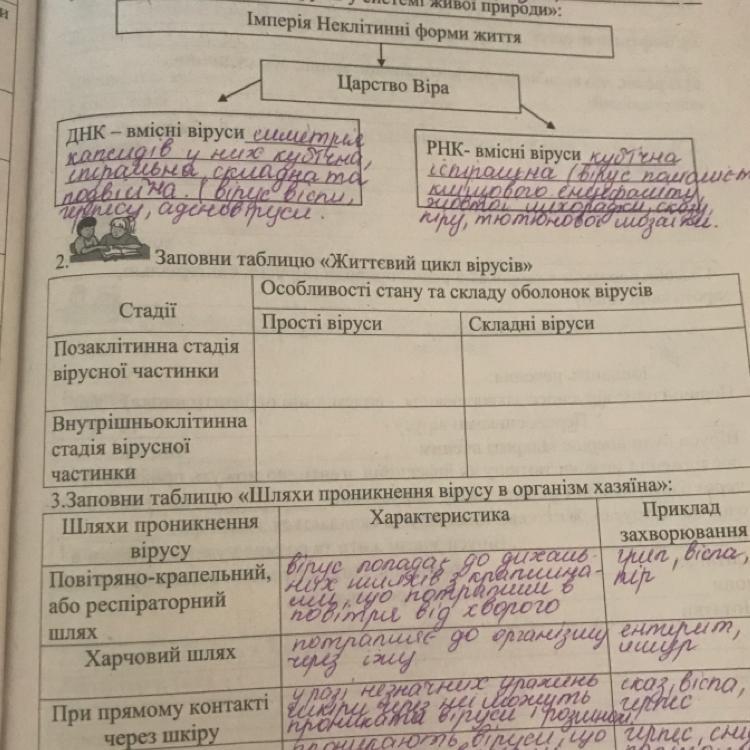 у системі живої природи»:
Імперія Неклітинні форми життя
Царство Віра
ДНК – вмісні віруси симетрія
капсидів у них кубічна,
спіральна, складна та
подвійна. (вірус віспи,
герпесу, аденовіруси.
РНК- вмісні віруси кубічна
і спіральна (вірус
кишкового енцефаліту,
жовтої лихоманки, сказу,
кіру, тютюнової мозаїки.
2. Заповни таблицю «Життєвий цикл вірусів»
Стадії
Особливості стану та складу оболонок вірусів
Прості віруси
Складні віруси
Позаклітинна стадія
вірусної частинки
Внутрішньоклітинна
стадія вірусної
частинки
3.Заповни таблицю «Шляхи проникнення вірусу в організм хазяїна»:
Шляхи проникнення
вірусу
Характеристика
Приклад
захворювання
Повітряно-крапельний,
або респіраторний
шлях
вірус попадає до дихаль-
них шляхів з краплина-
ми, що потрапили в
повітря від хворого
грип, віспа,
кір
Харчовий шлях
потрапляє до організму
через їжу
ентерит,
ящур
При прямому контакті
через шкіру
у разі незначних уражень
шкіри через неї можуть
проникати віруси
сказ, віспа,
герпес
віруси, що
герпес,